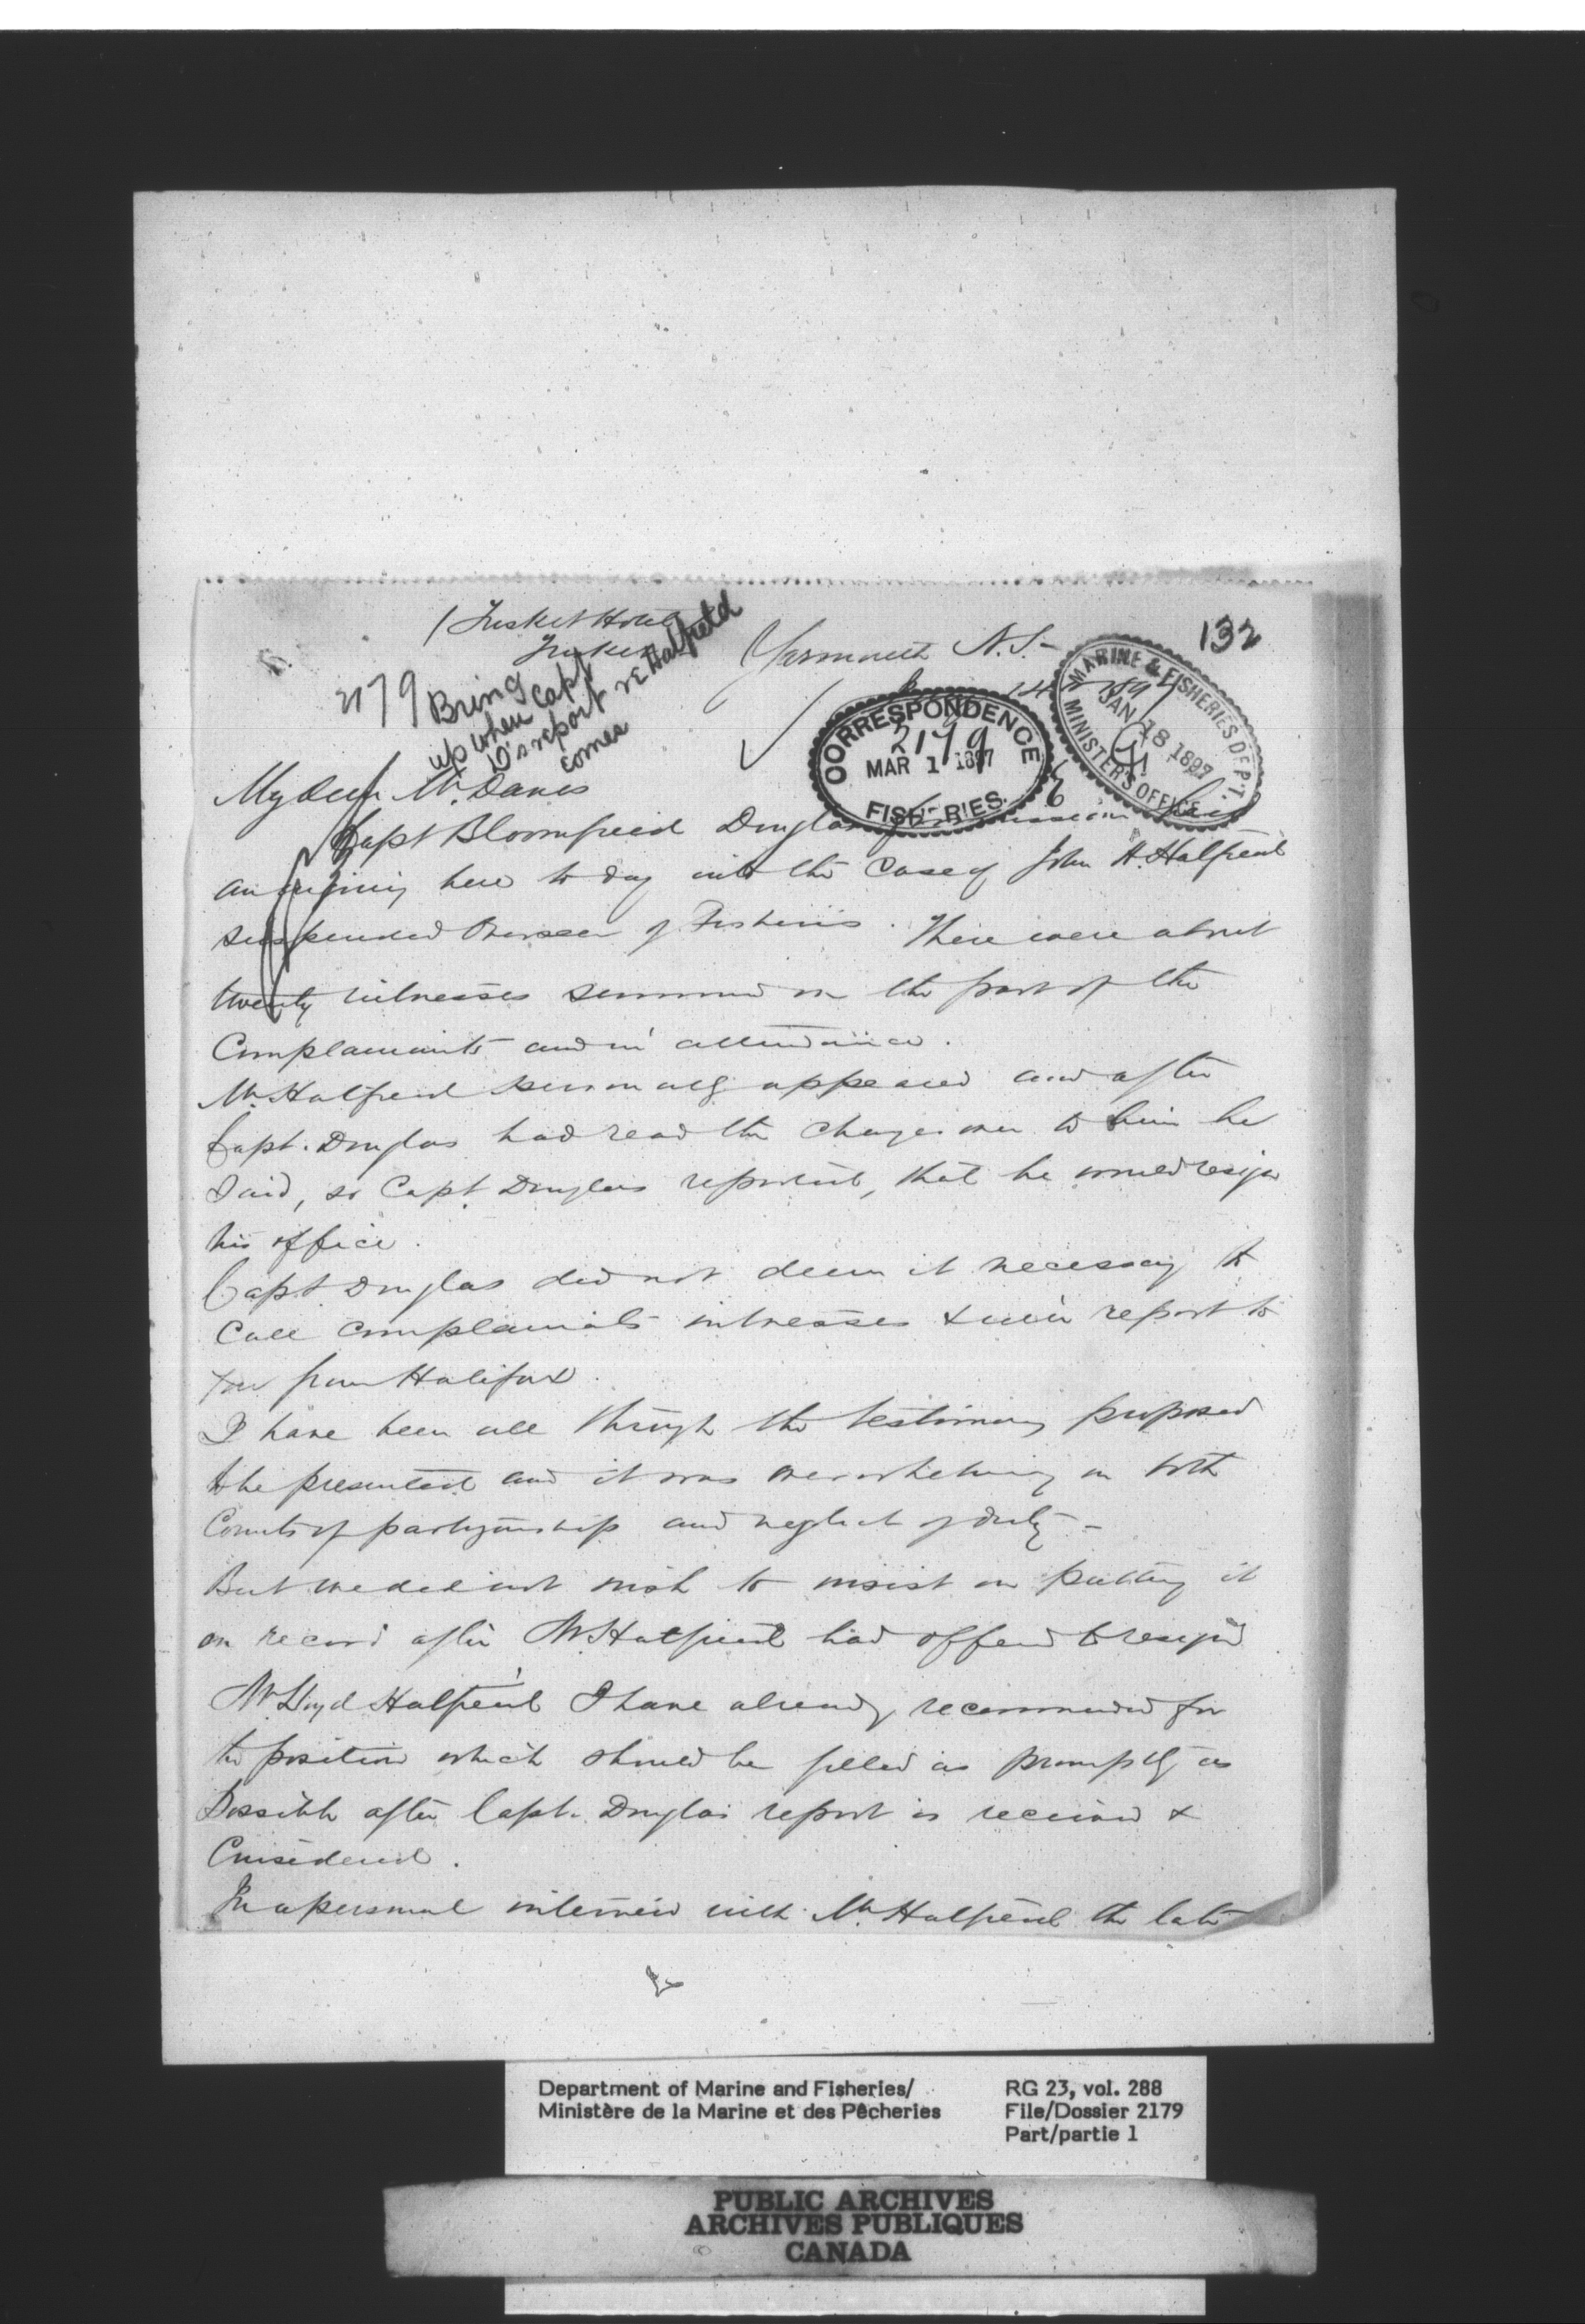 132
Tusket Hotel
Tusket
Yarmouth N.S.
14th 1897
2179
Bring
up when Capt
D's report re Hatfield
comes
MARINE & FISHERIES DEPT.
JAN 18 1897
MINISTER'S OFFICE
CORRESPONDENCE
2179
MAR 1 1897
FISHERIES.
My dear Mr. Davies
Capt Bloomfield Douglas
an enquiry here to day into the Case of John H. Hatfield
suspended Overseer of Fisheries. There were about
twenty witnesses summoned on the part of the
Complainants and in attendance.
Mr. Hatfield personally appeared and after
Capt. Douglas had read the charges over to him he
Said, so Capt Douglas reported, that he would resign
his office.
Capt Douglas did not deem it necessary to
Call complainants witnesses & will report to
you from Halifax.
I have been all through the testimony proposed
to be presented and it was overwhelming on both
Counts of partizanship and neglect of duty -
But we did not wish to insist on putting it
on record after Mr Hatfield had offered to resign
Mr Lloyd Hatfield I have already recommended for
the position which should be filled as promptly as
Possible after Capt. Douglas report is received &
Considered.
In a personal interview with Mr Hatfield the late
Department of Marine and Fisheries/
Ministère de la Marine et des Pêcheries
RG 23, vol. 288
File/Dossier 2179
Part/partie 1
PUBLIC ARCHIVES
ARCHIVES PUBLIQUES
CANADA